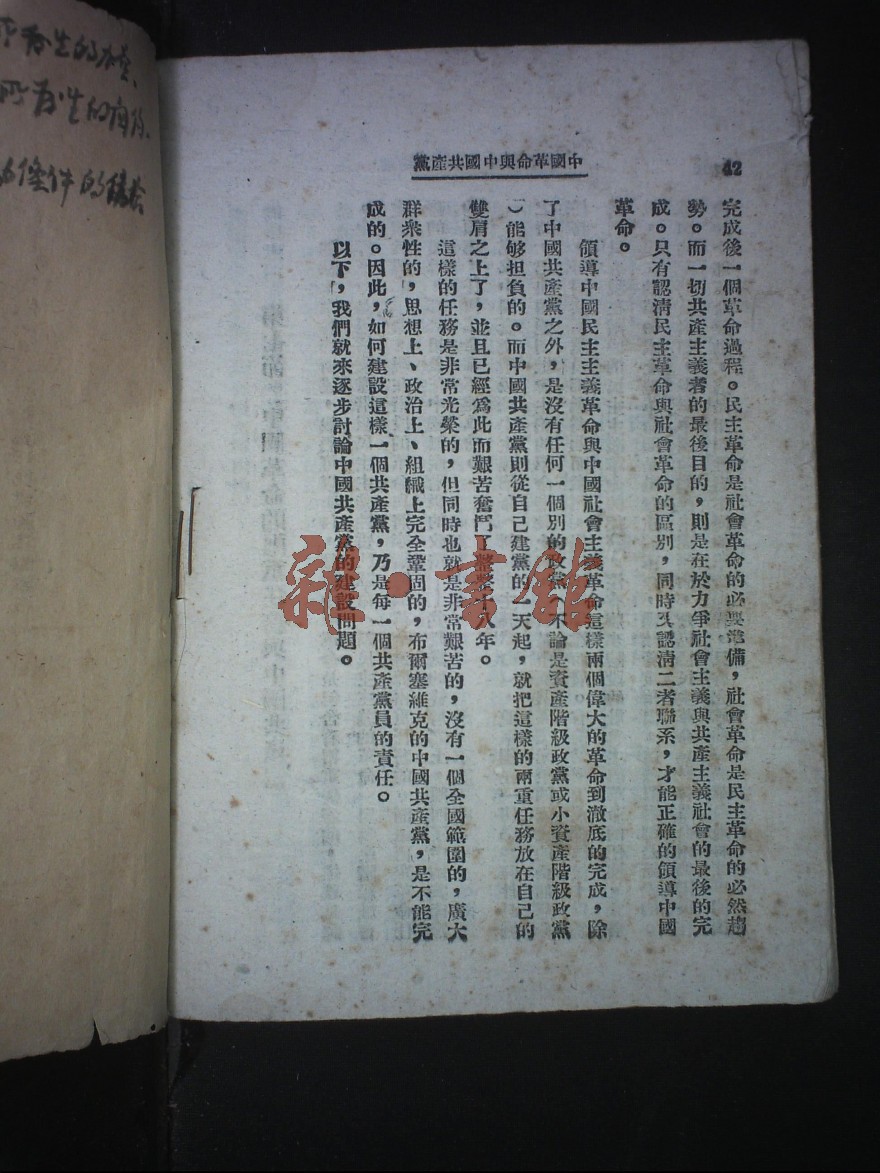 42
中國革命與中國共產黨
完成後一個革命過程。民主革命是社會革命的必要準備，社會革命是民主革命的必然趨
勢。而一切共產主義者的最後目的，則是在於力爭社會主義與共產主義社會的最後的完
成。只有認清民主革命與社會革命的區別，同時又認清二者聯系，才能正確的領導中國
革命。
領導中國民主主義革命與中國社會主義革命這樣兩個偉大的革命到澈底的完成，除
了中國共產黨之外，是沒有任何一個別的政黨（不論是資產階級政黨或小資產階級政黨
）能够担負的。而中國共產黨則從自己建黨的一天起，就把這樣的兩重任務放在自己的
雙肩之上了，並且已經爲此而艱苦奮鬥了整整十八年。
這樣的任務是非常光榮的，但同時也就是非常艱苦的，沒有一個全國範圍的，廣大
群衆性的，思想上、政治上、組織上完全鞏固的，布爾塞維克的中國共產黨，是不能完
成的。因此，如何建設這樣一個共產黨，乃是每一個共產黨員的責任。
以下，我們就來逐步討論中國共產黨的建設問題。
雜·書館
所發生的
所發生的
條件的